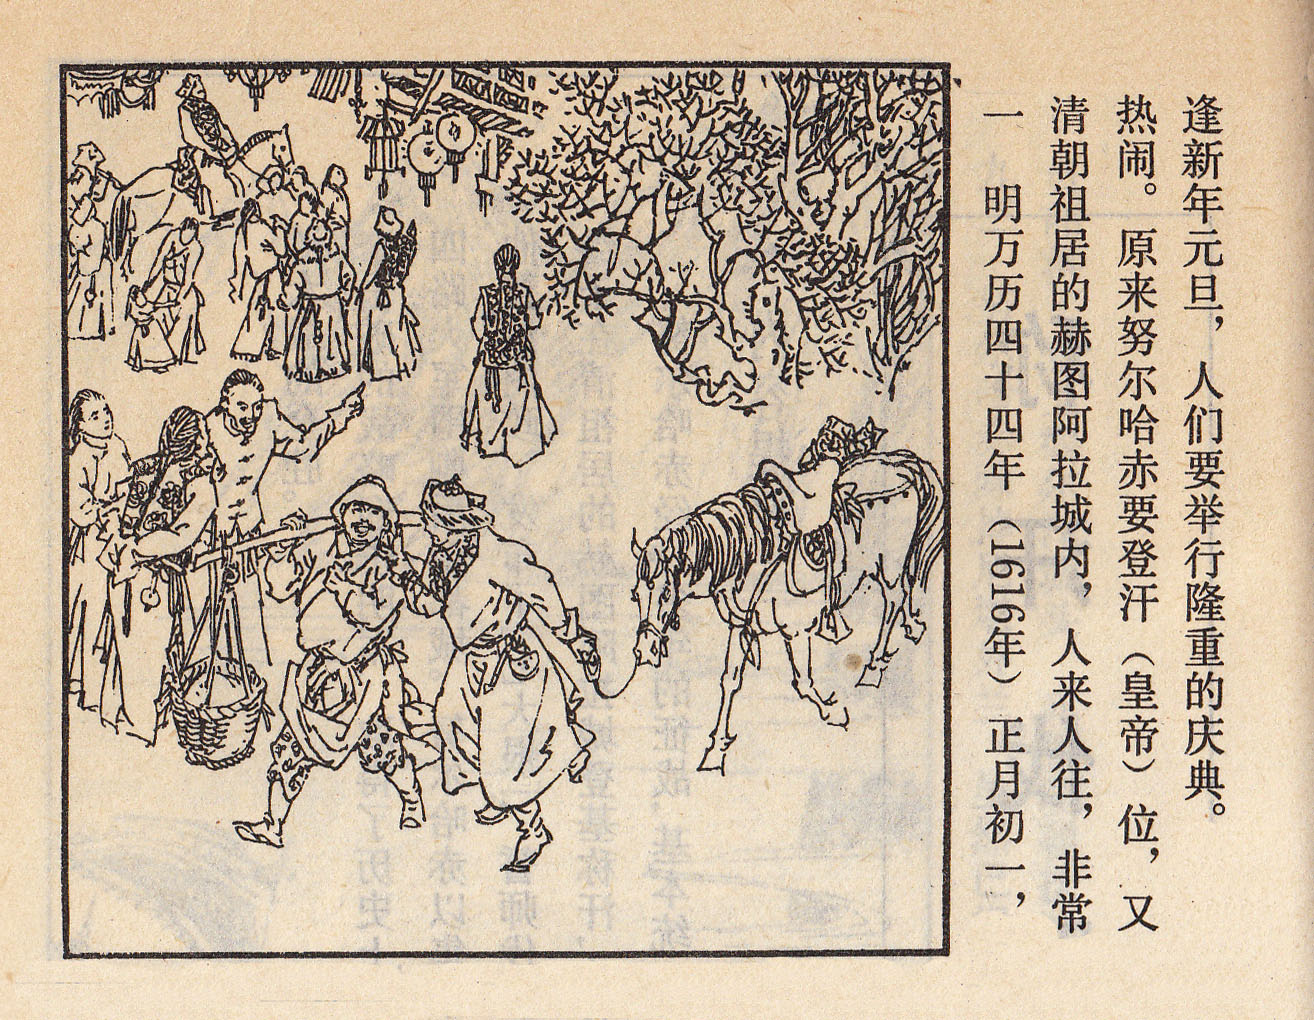 一 明万历四十四年（1616年）正月初一，
清朝祖居的赫图阿拉城内，人来人往，非常
热闹。原来努尔哈赤要登汗（皇帝）位，又
逢新年元旦，人们要举行隆重的庆典。